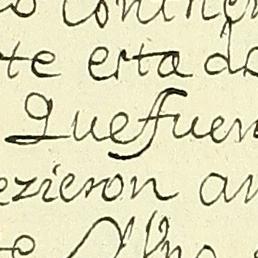 o contien
te esta do
Quefuer
ezieron an